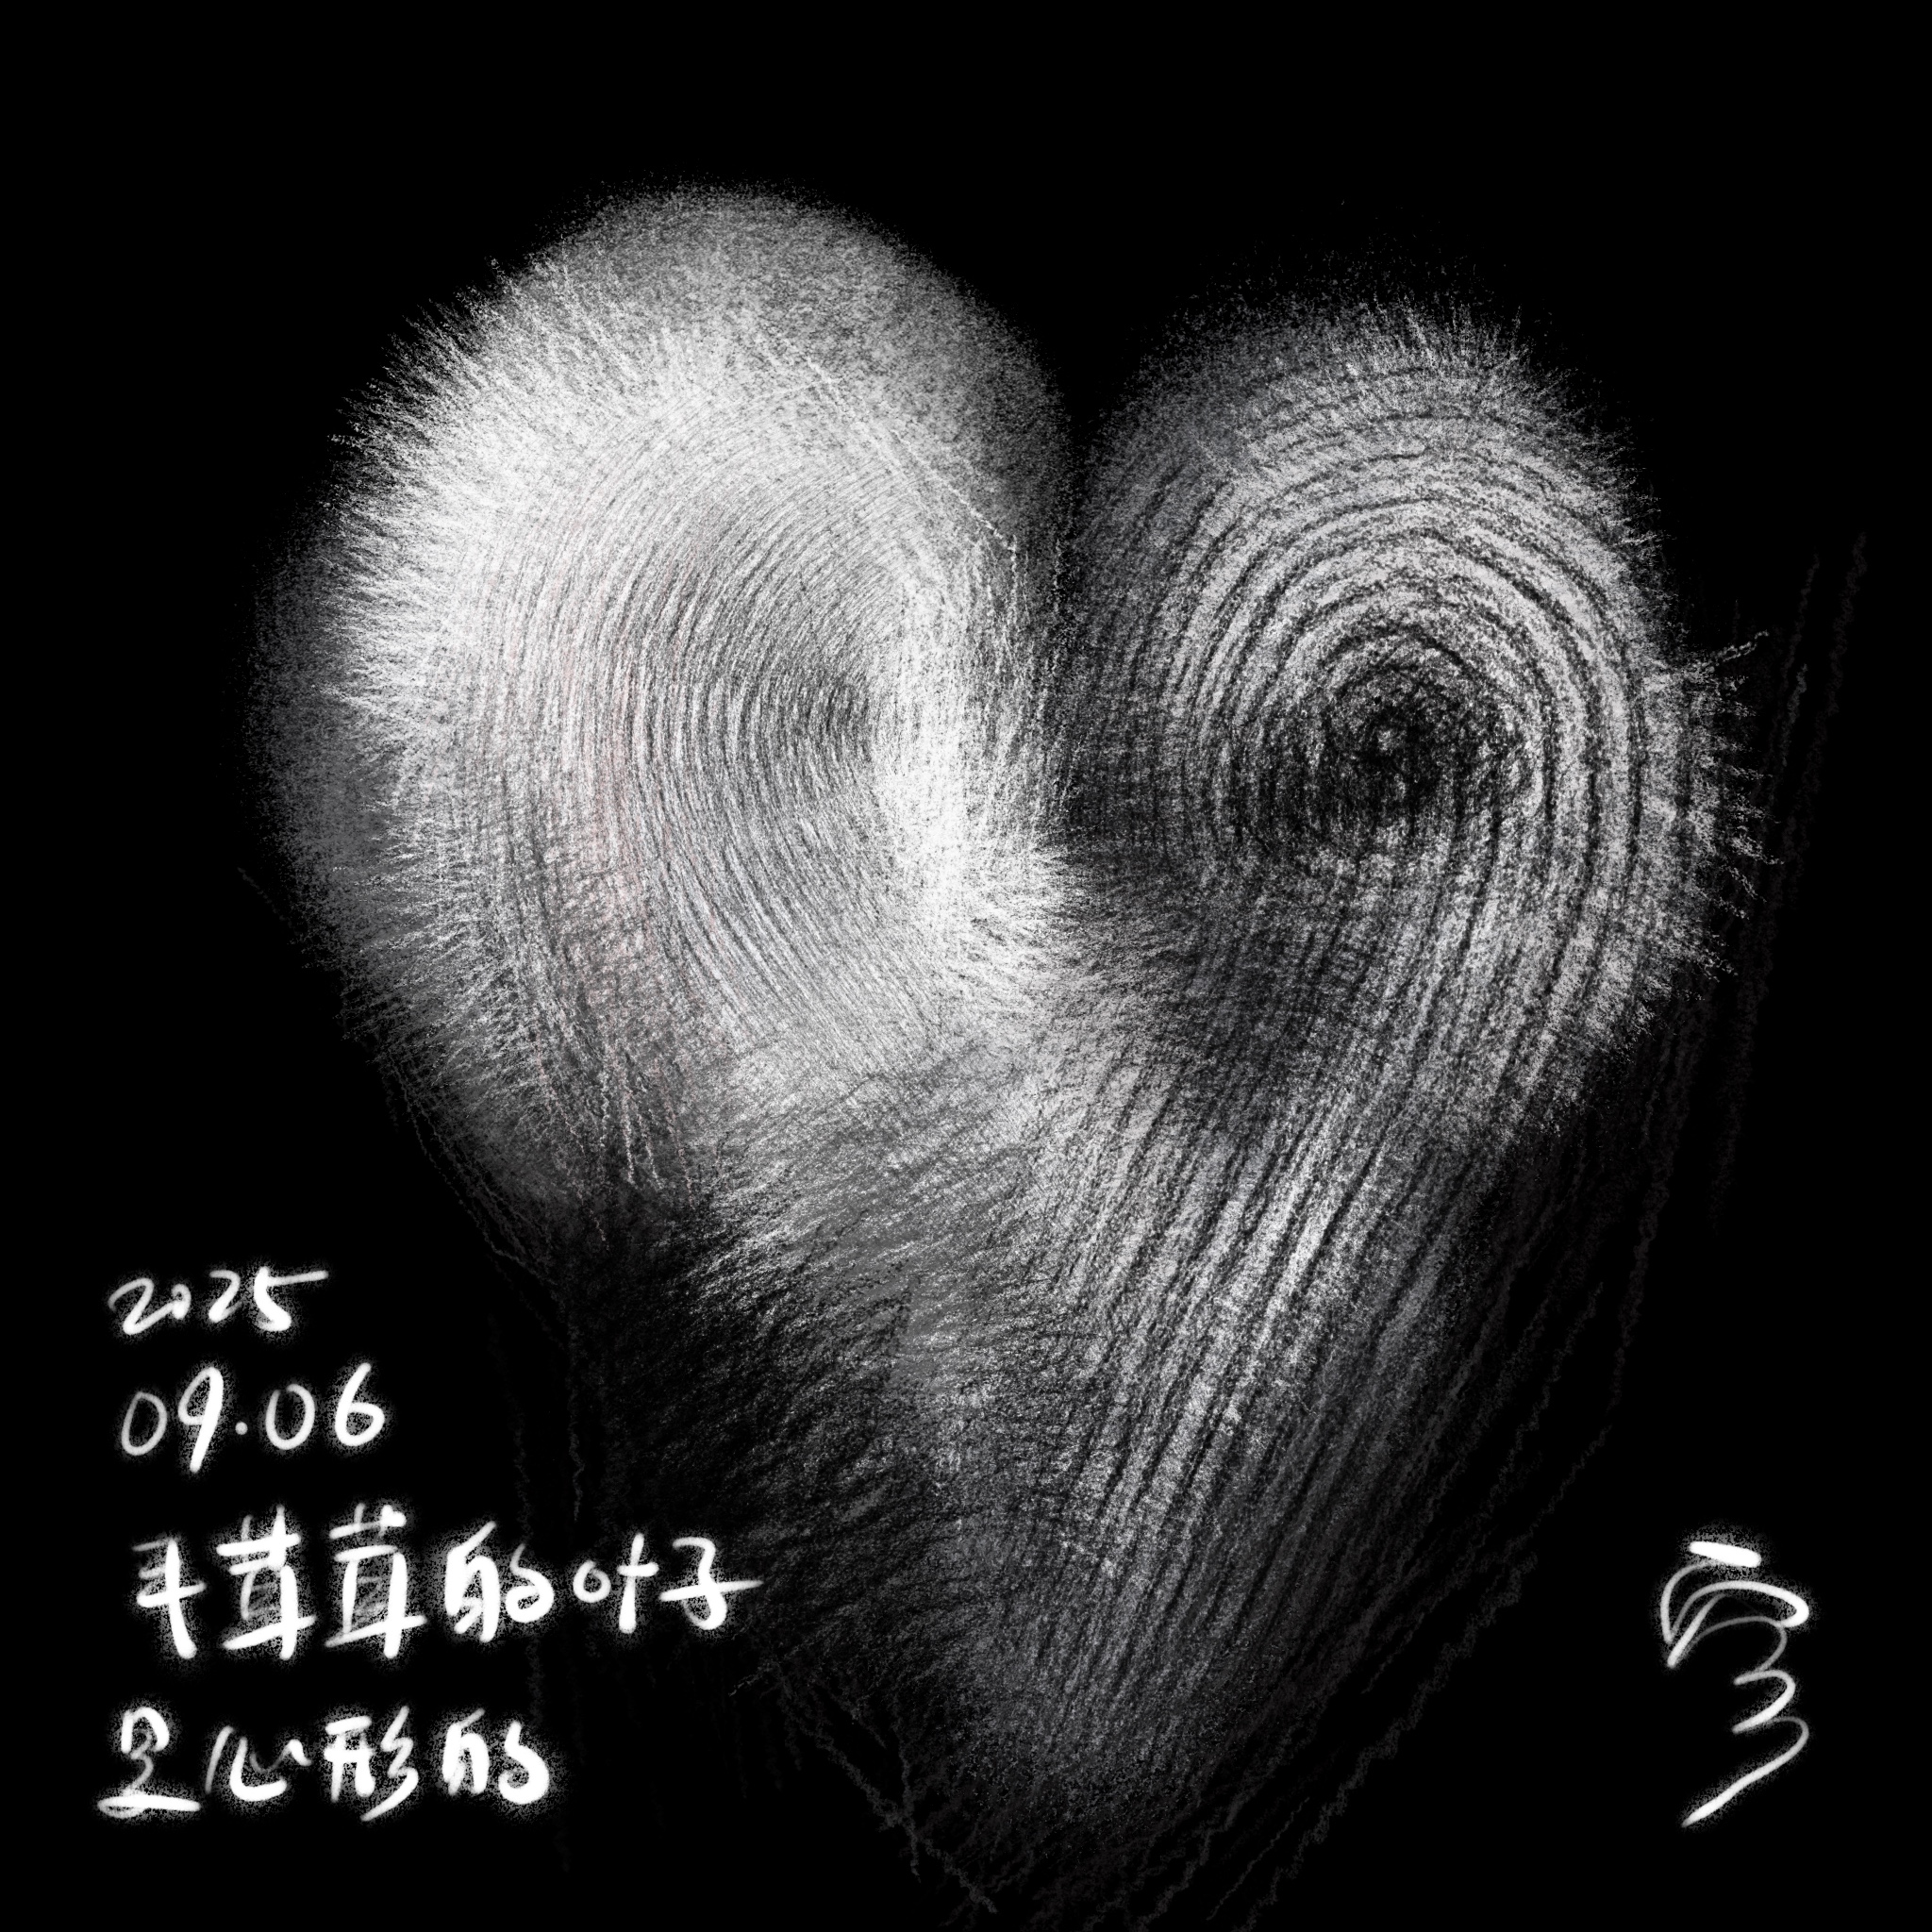 2025
09.06
毛茸茸的叶子
是心形的